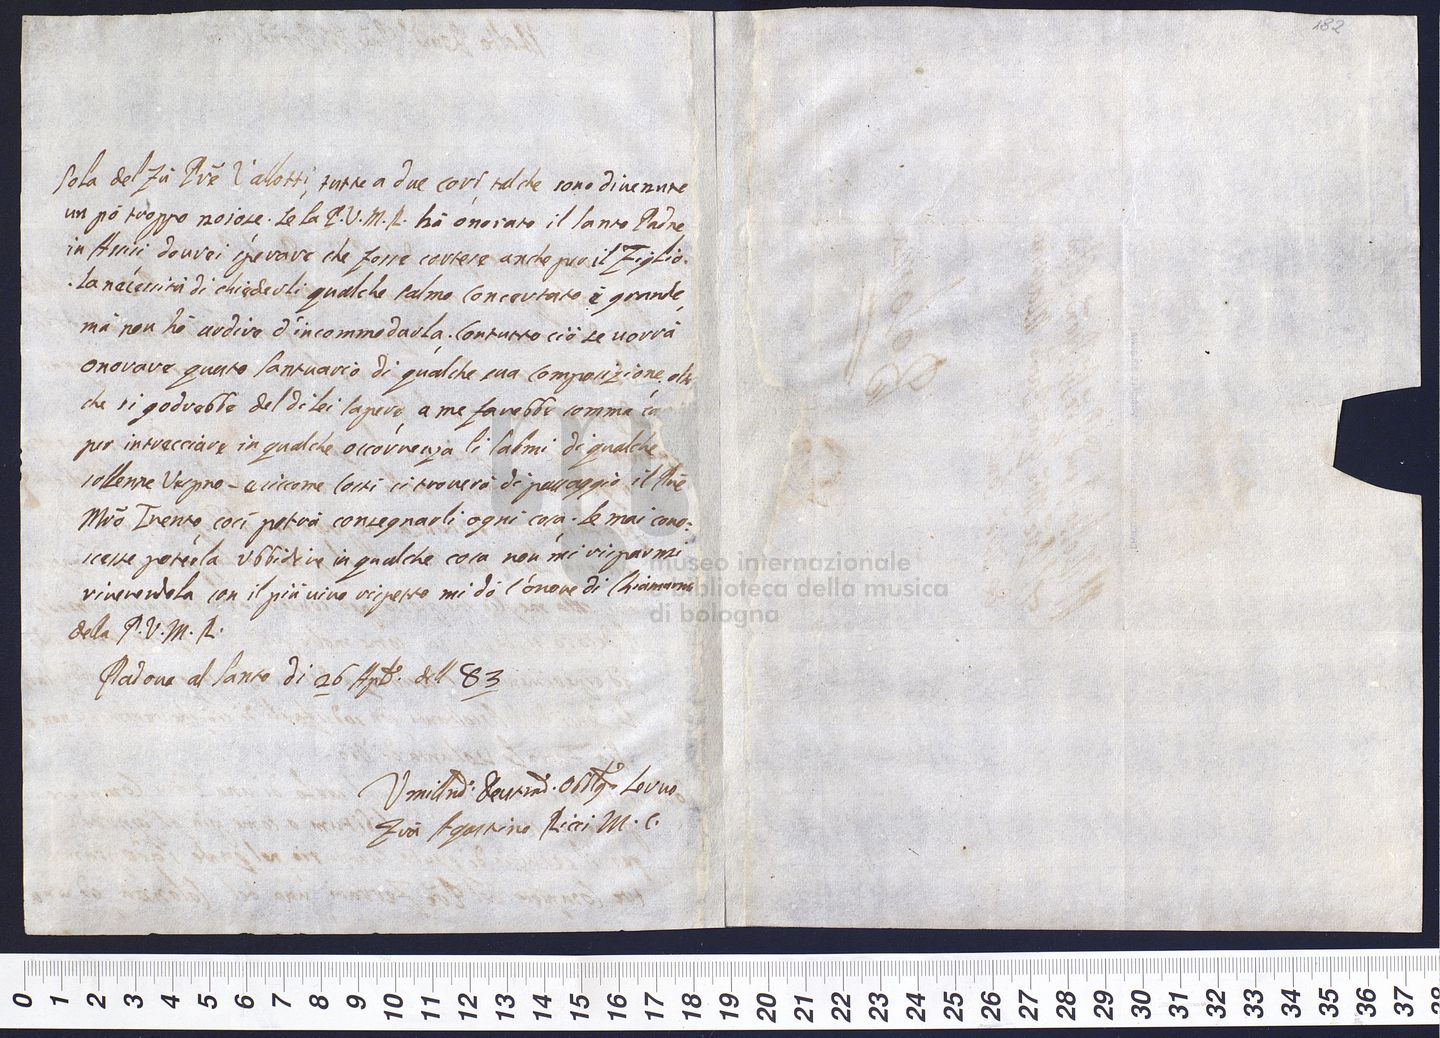 182
sola del fù Pre Vallotti tutte a due cori talche sono divenute
un pò troppo nojose. Se la P.V.M.R. hà onorato il Santo Padre
in Assisi dovrei sperare che fosse cortese anche per il Figlio.
La necessità di chiederli qualche salmo concertato è grande,
mà non hò ardire d'incommodarla. Contutto ciò se vorrà
onorare questo Santuario di qualche sua composizione, olt
che si godrebbe del di lei sapere a me farebbe somma
per intrecciare in qualche occorrenza li Salmi di qualche
sollenne Vespro - e siccome costì si troverà di passaggio il Pre
Mro Trento così potrà consegnarli ogni cosa. Se mai cono-
scesse poterla ubbidire in qualche cosa non mi risparmi
riverendola con il più vivo rispetto mi dò l'onore di chiamarmi
della P.V.M.R.
Padova al Santo di 26 Apre. dell 83
Umilmo. Devotmo. Obblgmo Servo
Frà Agostino Ricci M.C.
museo internazionale
e biblioteca della musica
di bologna
0 1 2 3 4 5 6 7 8 9 10 11 12 13 14 15 16 17 18 19 20 21 22 23 24 25 26 27 28 29 30 31 32 33 34 35 36 37 38